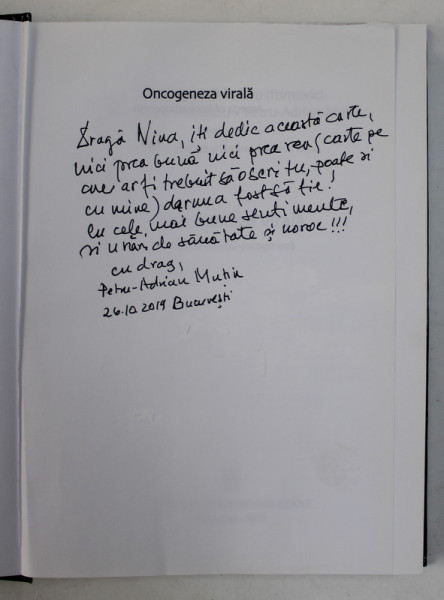 Oncogeneza virală
Dragă Nina, îți dedic această carte,
nici prea bună nici prea rea (carte pe
care ar fi trebuit să o scrii tu, poate și
cu mine) dar n-a fost să fie!
Cu cele mai bune sentimente,
și urări de sănătate și noroc!!!
cu drag,
Petru-Adrian Mutiu
26.10.2019 București